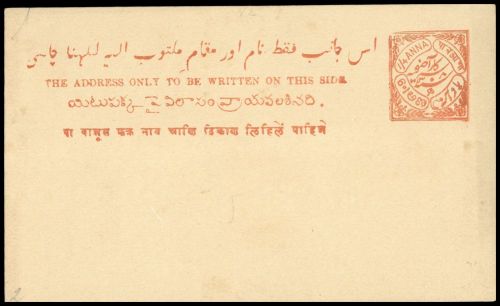 اس جانب فقط نام اور مقام مکتوب الیہ لکھنا چاہئے
THE ADDRESS ONLY TO BE WRITTEN ON THIS SIDE.
యీటుపక్క పై విలాసం వ్రాయవలశినది.
या बाजूस फक्त नाव आणि ठिकाण लिहिलें पाहिजे
1/4 ANNA